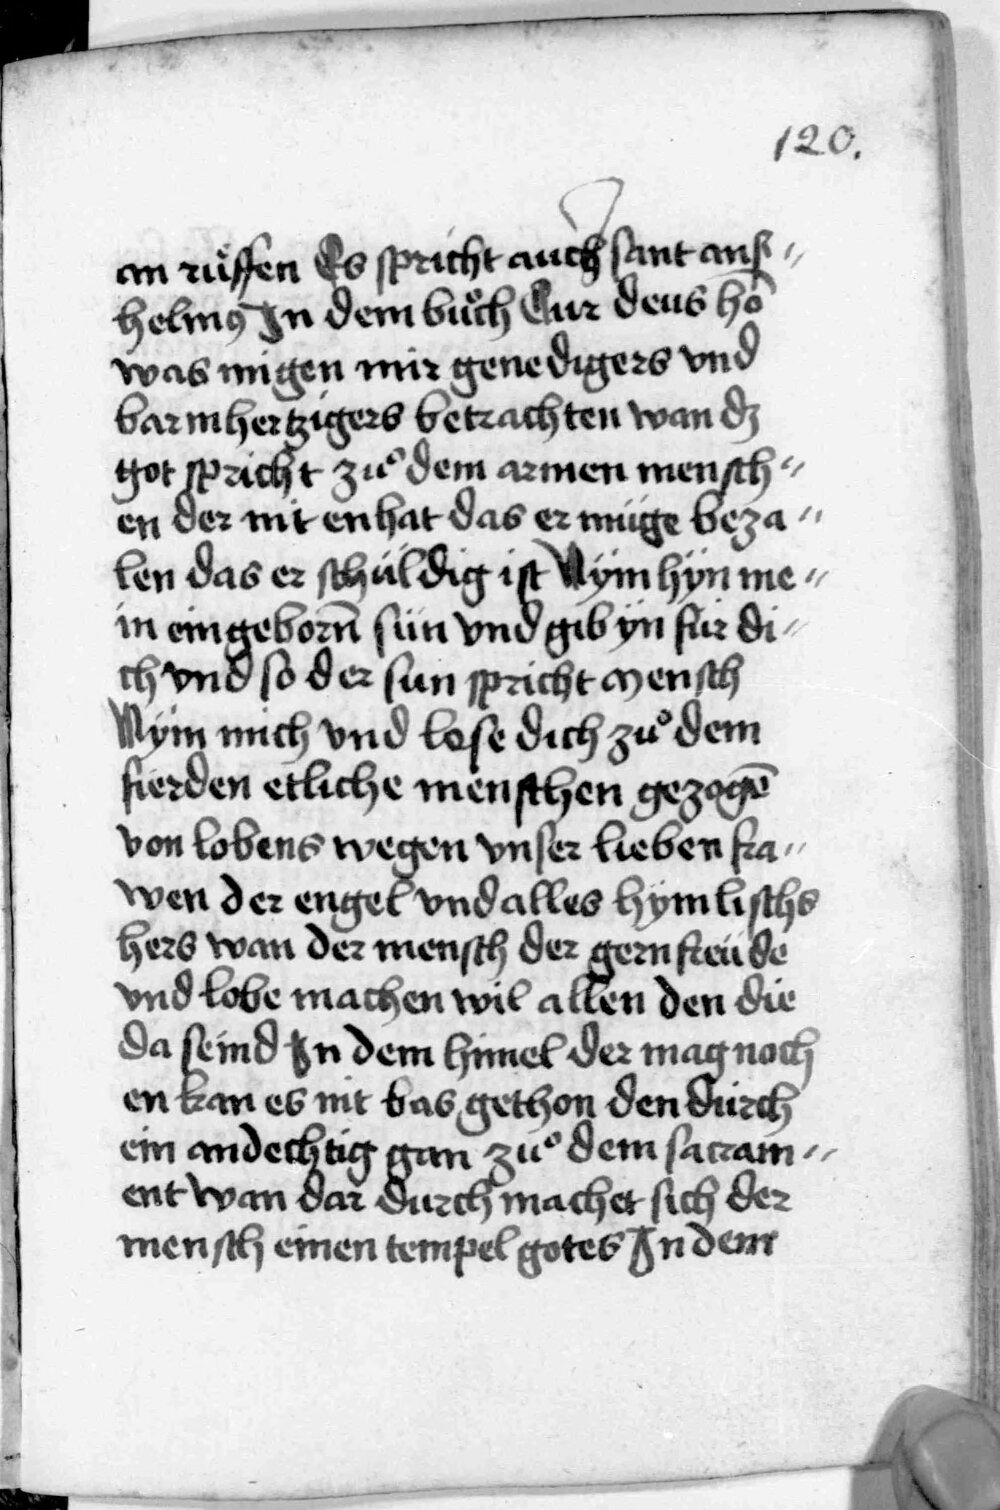 120.
an ruͤffen Es spricht auch sant ans-
helmꝰ In dem buͦch Cur deus hō
was migen mir genedigers vnd
barmhertzigers betrachten wan dz
got spricht zuͦ dem armen mensch-
en der nit enhat das er müge beza-
len das er schüldig ist Nÿm hÿn me-
in eingeborn̄ sün vnd gib ÿn für di-
ch vnd so der sun spricht Mensch
Nÿm mich vnd lose dich zuͦ dem
fierden etliche menschen gezogē
von lobens wegen vnser lieben fra-
wen der engel vnd alles hÿmlischs
hers wan der mensch der gern freüde
vnd lobe machen wil allen den die
da seind In dem himel der mag noch
en kan es nit bas gethon den durch
ein andechtig gan zuͦ dem sacram-
ent wan dar durch machet sich der
mensch einen tempel gotes In dem